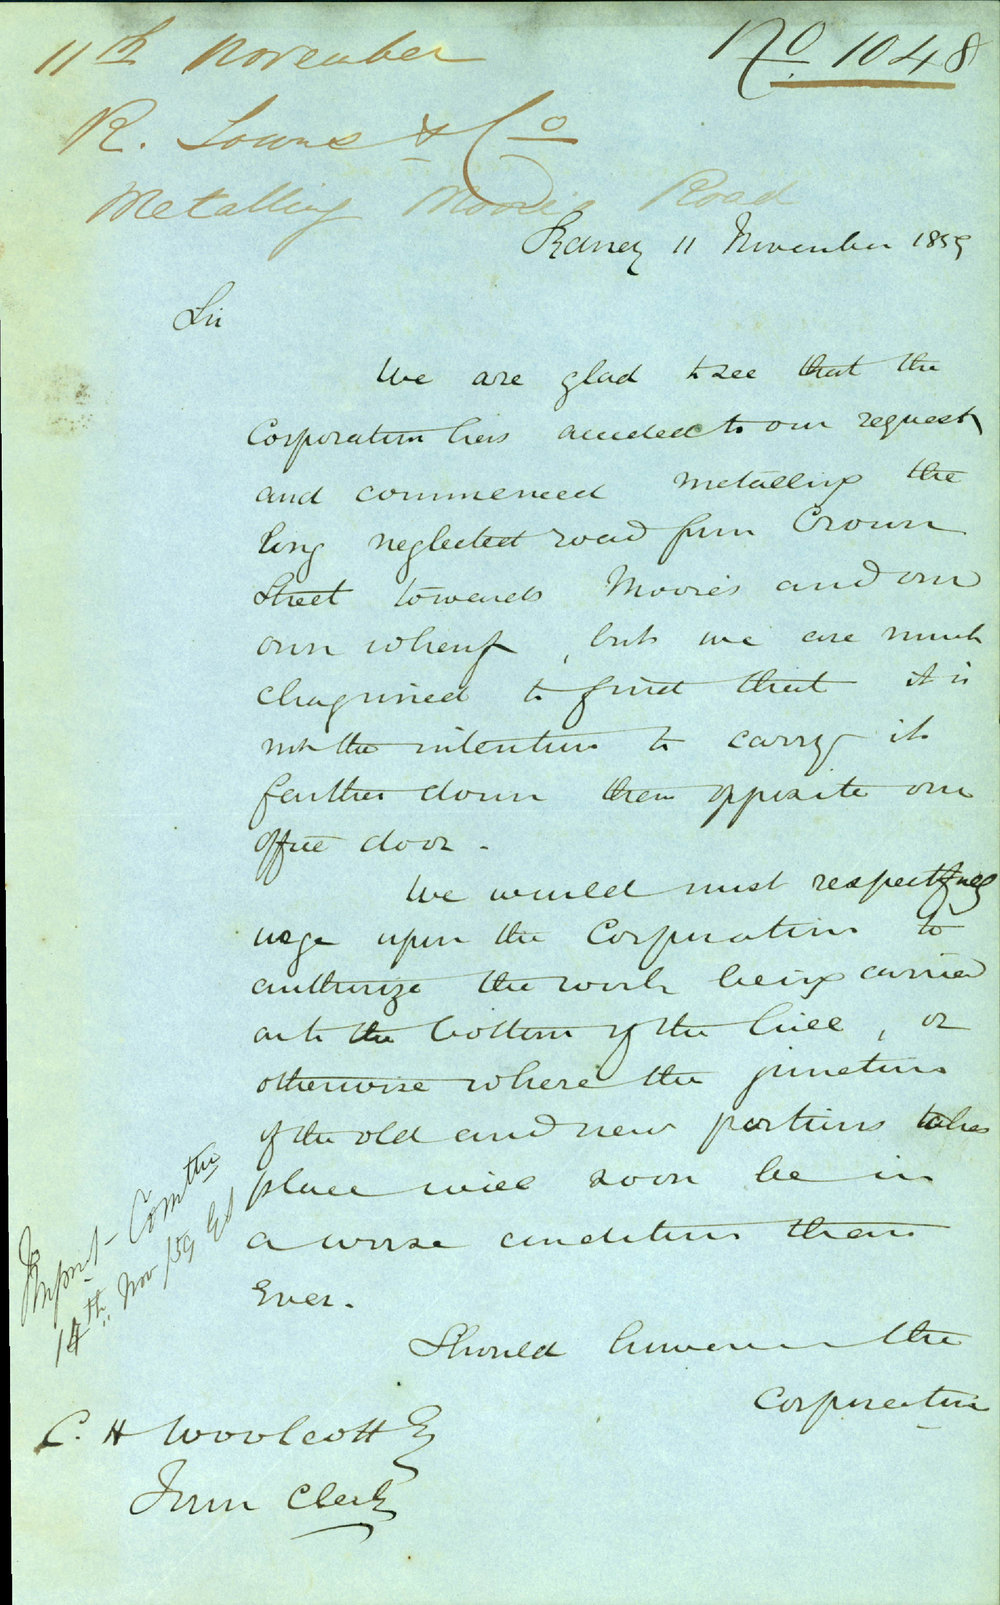 11th November
No. 1048
R. Towns & Co
Metalling Moore's Road
Sydney 11 November 1859
Sir
We are glad to see that the
Corporation has acceded to our request
and commenced metalling the
long neglected road from Crown
Street towards Moore's and our
own wharf, but we are much
chagrined to find that it is
not the intention to carry it
farther down than opposite our
office door.
We would most respectfully
urge upon the Corporation to
authorize the work being carried
out to the bottom of the hill, or
otherwise where the junction
of the old and new portions takes
place will soon be in
a worse condition than
Ever.
Should however the
Corporation
Impvt Comttee
14th Nov /59
C. H Woolcott Esq
Town Clerk